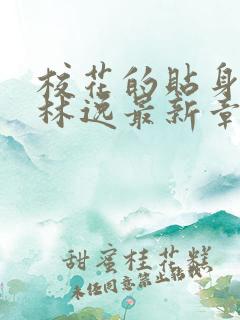 校花的贴身
林逸最新章
甜蜜桂花糕
未经同意禁止转载